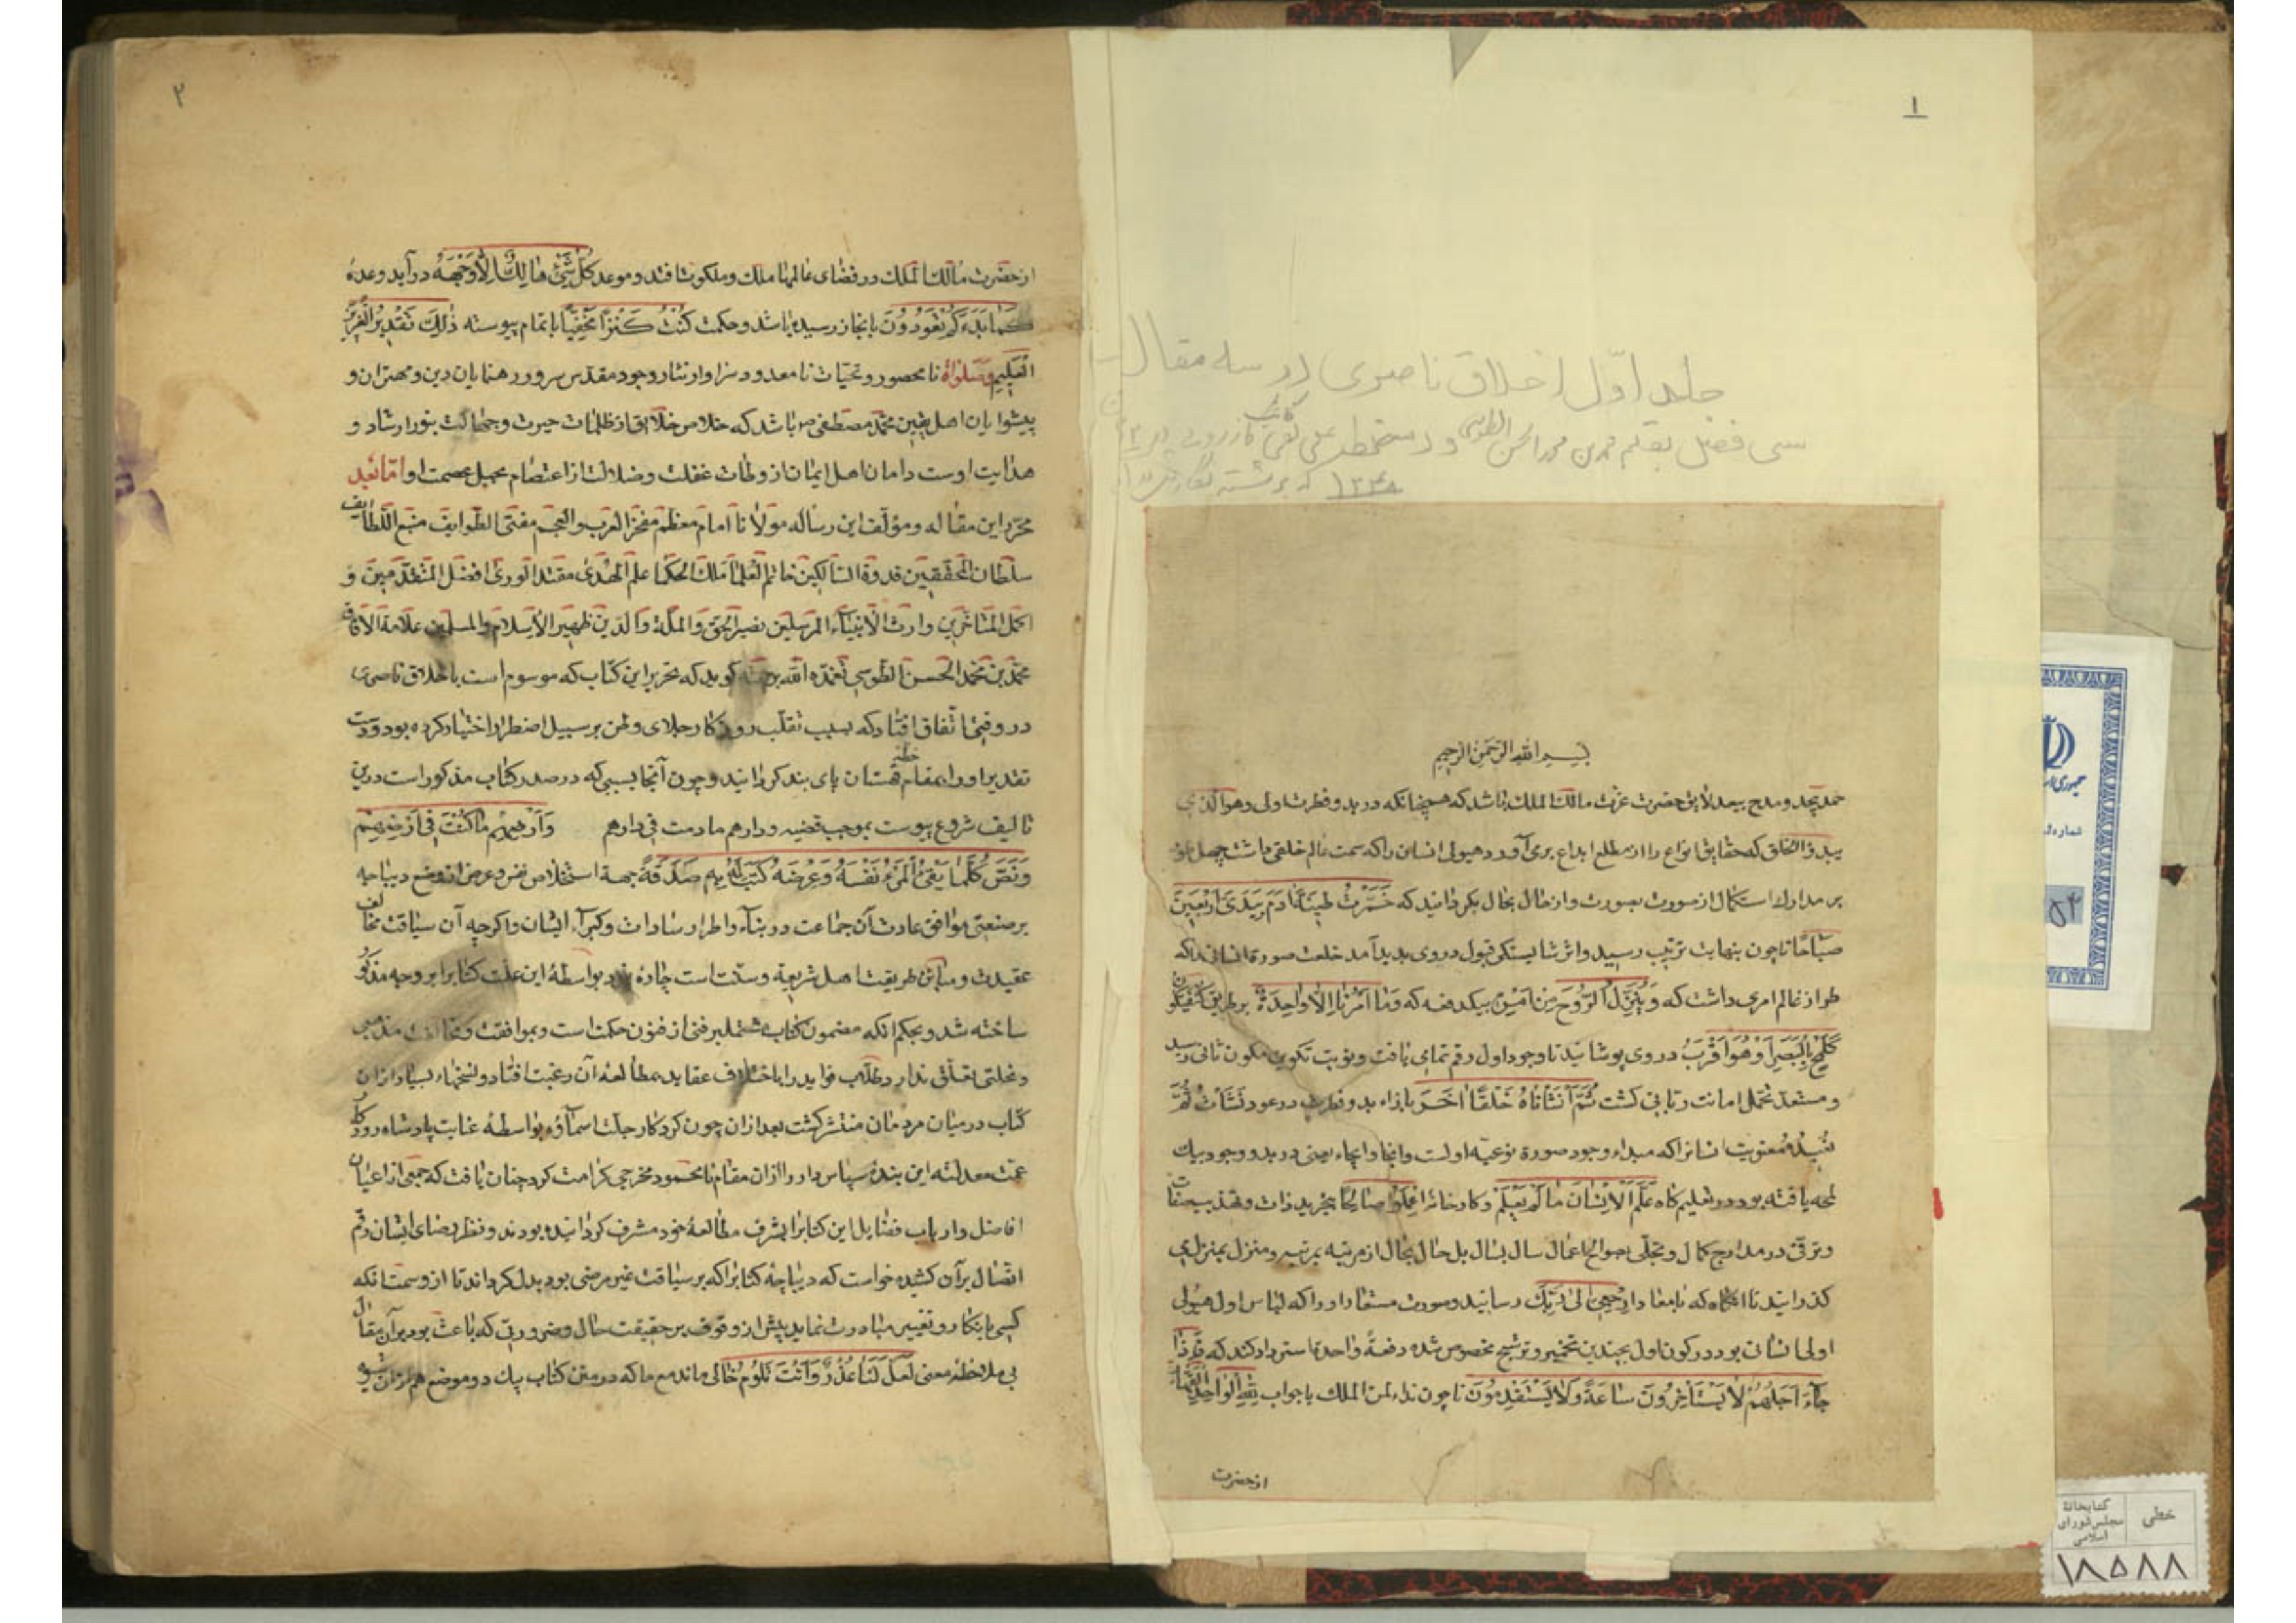 ۱
جلد اوّل اخلاق ناصری در سه مقاله
سی فصل بقلم محمد بن محمد الحسن الطوسی و دستخط علی نقی
بسم الله الرحمن الرحیم
حمد بیحد و مدح بیعد لایق حضرت عزت مالک الملک باشد که همچنانکه در بدو فطرت اولی وهو الذی
یبدؤ الخلق که حقایق انواع را از مطلع ابداع برمی‌آورد هیولی انسان را که سمت عالم خلقی داشت چهل طور
بر مدارک استکمال از صورت بصورت و از حال بحال بگردانید که خَمَّرْتُ طینَةَ آدَمَ بِیَدَیَّ اَرْبَعینَ
صَباحًا تا چون بنهایت ترتیب رسید و اثر شایستگی قبول در وی پدید آمد خلعت صورة انسانی را که
طراز عالم امری داشت که وَ یُنَزِّلُ الرُّوحَ مِنْ اَمْرِهِ بیکدفعه که وَما اَمْرُنا اِلّا واحِدَةٌ بر طریق کن فیکون
کَلَمْحٍ بِالْبَصَرِ اَوْ هُوَ اَقْرَبُ در وی پوشانید تا وجود اول رقم تمامی یافت و نوبت تکوین بکون ثانی رسید
و مستعد تحمل امانت ربانی گشت ثُمَّ اَنْشَأْناهُ خَلْقًا آخَرَ بازاء بدو فطرت در عود نشأت ثُمَّ
یُعیدُهُ معنویت انسانرا که مبداء وجود صورة نوعیه اوست و ایجاد یعنی در بدو وجود بیک
لمحه یافته بود در تعلیم گاه عَلَّمَ الْاِنْسانَ ما لَمْ یَعْلَمْ و کارخانه اِعْمَلُوا صالِحًا بتجرید ذات و تهذیب صفات
و ترقی در مدارج کمال و تجلّی بصوالح اعمال سال بسال بل حال بحال از مرتبه بمرتبه و منزل بمنزل می
گذرانید تا آنگاه که بمعاد اِرْجِعی اِلی رَبِّکِ رسانید و صورت مستعار او را که لباس اول هیولی
اولی انسانی بود در کون اول بچندین تخمیر و ترشیح مخصوص شده دفعةً واحدة استرداد کند که فَاِذا
جاءَ اَجَلُهُمْ لا یَسْتَأْخِرُونَ ساعَةً وَلا یَسْتَقْدِمُونَ تا چون نداء لمن الملک باجواب لِلّهِ الْواحِدِ الْقَهّارِ
از حضرت
۲
از حضرت مالک الملک در فضای عالمها ملک و ملکوت افتد و موعد کُلُّ شَیْءٍ هالِکٌ اِلّا وَجْهَهُ درآید وعده
کَما بَدَءَکُمْ تَعُودُونَ بانجاز رسیده باشد و حکمت کُنْتُ کَنْزًا مَخْفِیًّا باتمام پیوسته ذٰلِکَ تَقْدیرُ الْعَزیزِ
الْعَلیمِ و صلواة نامحصور و تحیّات نامعدود سزاوار نثار وجود مقدّس سرور رهنمایان دین و مهتران و
پیشوایان اهل یقین محمّد مصطفی ص باشد که خلاص خلایق از ظلمات حیرت و جهالت بنور ارشاد و
هدایت اوست و امان اهل ایمان از ورطات غفلت و ضلالت از اعتصام بحبل عصمت او امّا بعد
محرّر این مقاله و مؤلّف این رساله مولانا امام معظّم مفخر العرب والعجم مفتی الطّوایف منبع اللّطایف
سلطان المحقّقین قدوة السّالکین خاتم العلماء ملک الحکماء علم الهُدی مقتدا الوری افضل المتقدّمین و
اکمل المتأخّرین وارث الانبیاء المرسلین نصیر الحق والملّة والدین ظهیر الاسلام والمسلمین علّامة الآفاق
محمّد بن محمّد الحسن الطّوسی تغمّده الله برحمته گوید که تحریر این کتاب که موسوم است باخلاق ناصری
در وقتی اتّفاق افتاد که بسبب تقلّب روزگار جلای وطن بر سبیل اضطرار اختیار کرده بود و دست
تقدیر او را بمقام خطه قهستان پای بند گردانید و چون آنجا بسببی که در صدر کتاب مذکور است درین
تالیف شروع پیوست بموجب قضیه ودارهم مادمت فی دارهم وَاَرْضِهِمْ ما کُنْتَ فی اَرْضِهِمْ
وَ نَصّ کُلَّما یَقی الْمَرْءُ نَفْسَهُ وَعِرْضَهُ کُتِبَ لَهُ بِهِ صَدَقَةٌ جهة استخلاص نفس و عرض از وضع دیباجه
بر صنعتی موافق عادت آن جماعت در ثناء و اطراء سادات و کبراء ایشان و اگرچه آن سیاقت مخالف
عقیدت و مباین طریقت اهل شریعة و سنّت است چاره نبود بواسطه این علّت کتابرا بر وجه مذکور
ساخته شد و بحکم آنکه مضمون کتاب مشتمل بر فنی از فنون حکمت است و بموافقت و مخالفت مذهبی
و نحلتی تعلّق ندارد طلّاب فواید را با اختلاف عقاید بمطالعه آن رغبت افتاد و نسخهاء بسیار ازان
کتاب در میان مردمان منتشر گشت بعد ازان چون کردگار جلّت اسماؤه بواسطه عنایت پادشاه روزگار
عمّت معدلته این بنده سپاس دار را ازان مقام نامحمود مخرجی کرامت کرد چنان یافت که جمعی از اعیان
افاضل و ارباب فضایل این کتابرا بشرف مطالعه خود مشرف گردانیده بودند و نظر رضای ایشان رقم
اتّصال برآن کشیده خواست که دیباچه کتابرا که بر سیاقت غیر مرضی بود بدل گرداند تا از وصمت آنکه
کسی بانکار و تغییر مبادرت نماید پیش از وقوف بر حقیقت حال و ضرورتی که باعث بود بر آن مقال
بی ملاحظه معنی لَعَلَّ لَنا عُذْرٌ وَاَنْتَ تَلُومُ خالی ماند مع ما که در متن کتاب یک دو موضع هم
جمهوری
شماره
۵۴
خطی
کتابخانهٔ
مجلس شورای
اسلامی
۱۸۵۸۸